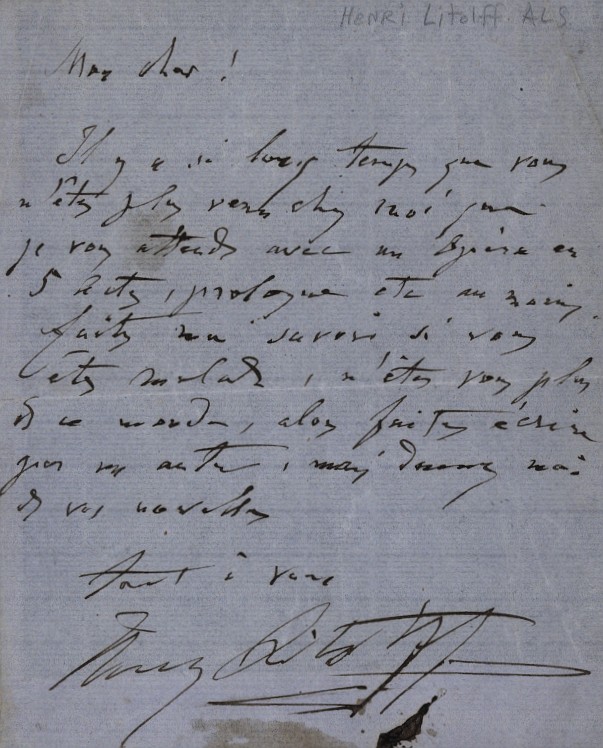 HENRI Litolff ALS
Mon cher !
Il y a si long temps que vous
n'êtes plus venu chez moi que
je vous attends avec un Opéra en
5 Actes, prologue etc au moins.
faites moi savoir si vous
êtes malade, n'êtes vous plus
de ce monde, alors faites écrire
par un autre, mais donnez moi
de vos nouvelles
tout à vous
Henry Litolff